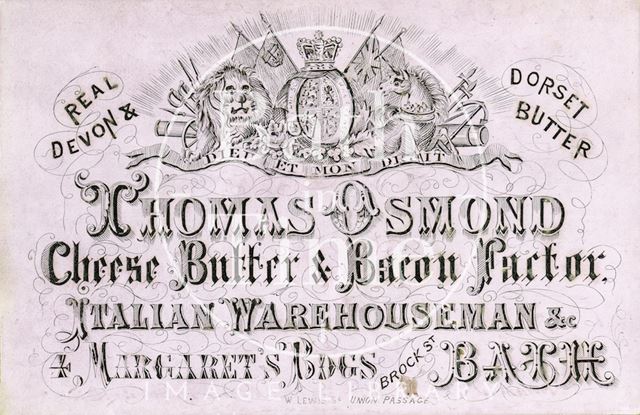 REAL
DEVON &
DORSET
BUTTER
DIEU ET MON DROIT
THOMAS OSMOND
Cheese Butter & Bacon Factor.
ITALIAN WAREHOUSEMAN &c
4 MARGARET'S BDGS BROCK ST BATH
W. LEWIS SC UNION PASSAGE
Bath
in
Time
IMAGE LIBRARY